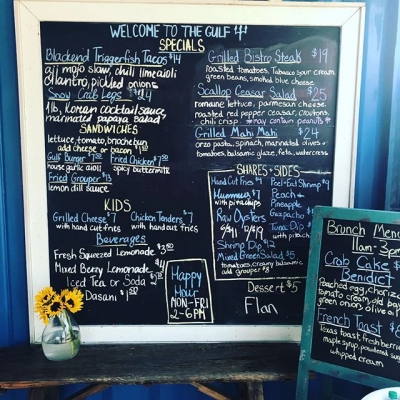 WELCOME TO THE GULF
SPECIALS
Blackend Triggerfish Tacos $14
aji mojo slaw, chili lime aioli
cilantro, pickled onions
Snow Crab Legs
1 lb, Korean cocktail sauce
marinated papaya salad
SANDWICHES
lettuce, tomato, brioche bun
add cheese or bacon
Gulf Burger $7
house garlic aioli
Fried Chicken
spicy buttermilk
Fried Grouper $13
lemon dill sauce
KIDS
Grilled Cheese $7
with hand cut fries
Chicken Tenders $7
with hand cut fries
Beverages
Fresh Squeezed Lemonade
Mixed Berry Lemonade
Iced Tea or Soda
Dasani
Happy
Hour
MON-FRI
2-6PM
Grilled Bistro Steak $19
roasted tomatoes, Tabasco sour cream
green beans, smoked blue cheese
Scallop Ceasar Salad $25
romaine lettuce, parmesan cheese
roasted red pepper ceasar, croutons,
chili crisp *may contain peanuts*
Grilled Mahi Mahi $24
orzo pasta, spinach, marinated olives +
tomatoes, balsamic glaze, feta, watercress
SHARES + SIDES
Hand Cut Fries $4
Hummus $7
with pita chips
Raw Oysters
Shrimp Dip
Mixed Green Salad $5
tomatoes, creamy balsamic
add grouper
Peel+Eat Shrimp
Peach +
Pineapple
Gazpacho
Tuna Dip
with pita chips
Dessert $5
Flan
Brunch Menu
11am-3pm
Crab Cake
Benedict
Poached egg, chorizo
tomato cream, old bay
green onion, olive oil
French Toast
Texas toast, fresh berries
maple syrup, powdered sugar
whipped cream